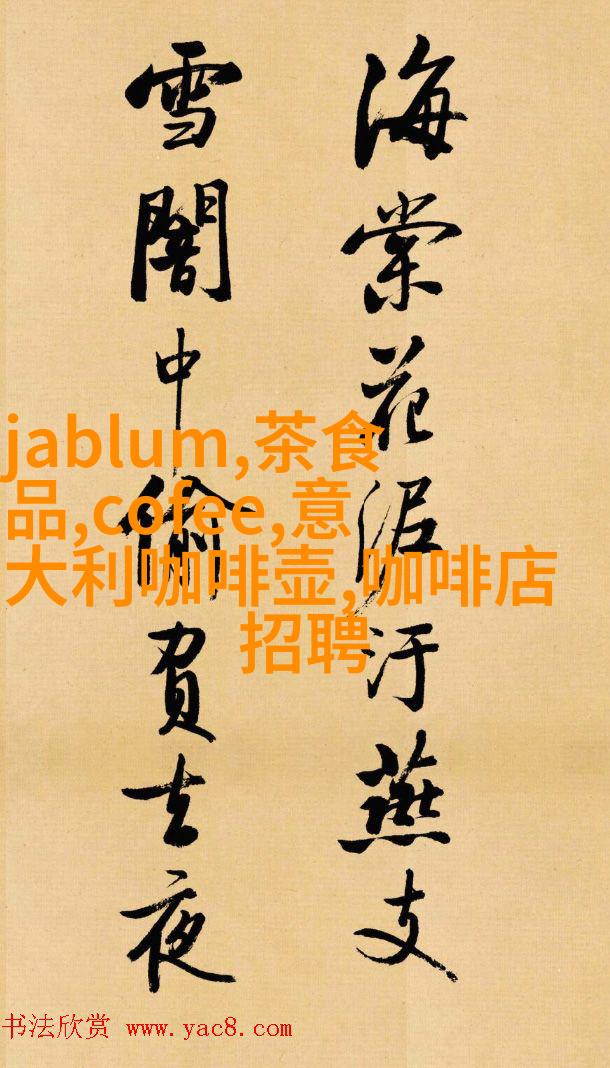 海棠花泥汙燕支
雪闇中偷負去夜
jablum,茶食
品,cofee,意
大利咖啡壶,咖啡店
招聘
书法欣赏 www.yac8.com